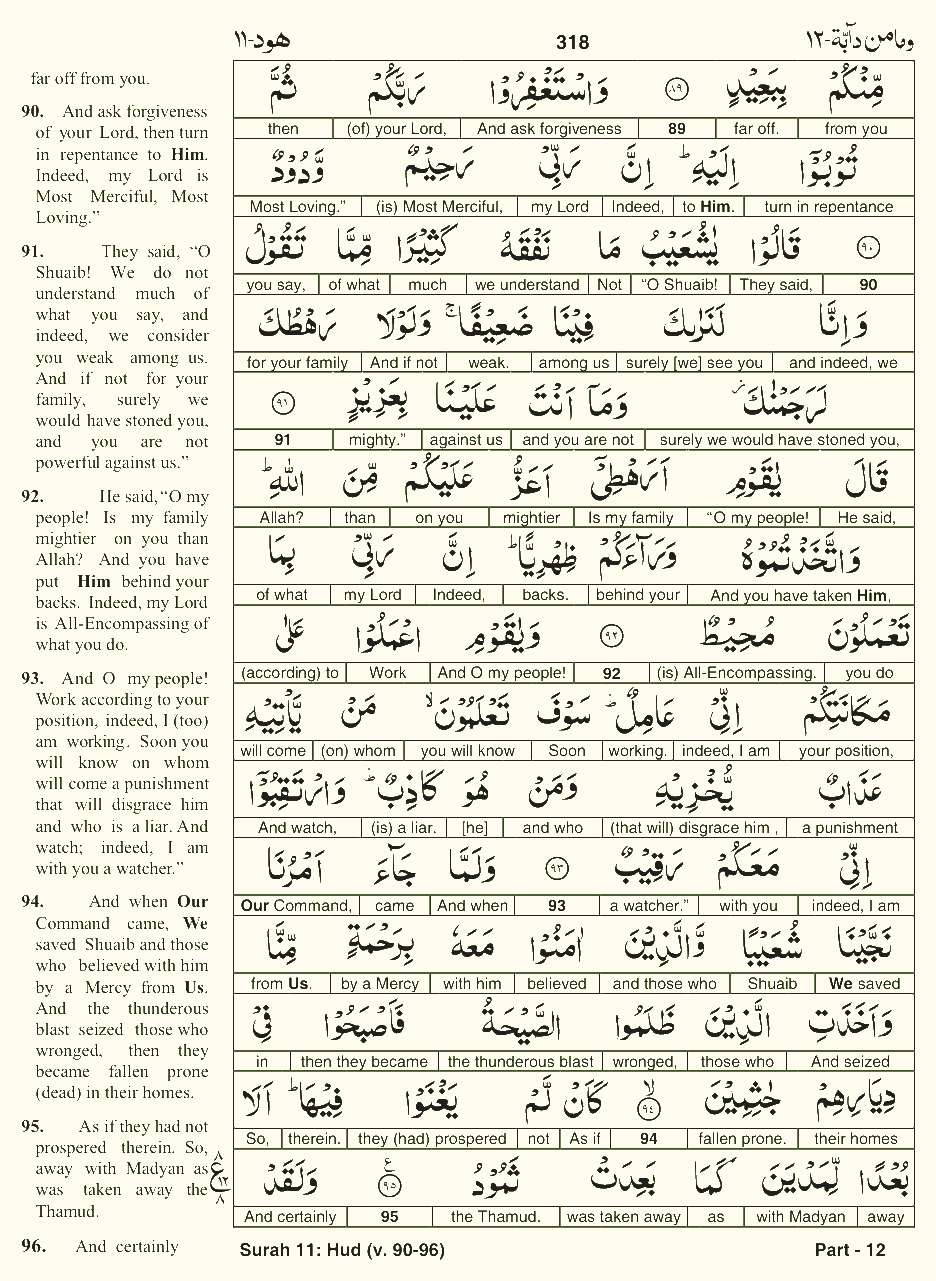 هود-١١
318
ومامن دآبة-١٢
far off from you.
90. And ask forgiveness
of your Lord, then turn
in repentance to Him.
Indeed, my Lord is
Most Merciful, Most
Loving.”
91. They said, “O
Shuaib! We do not
understand much of
what you say, and
indeed, we consider
you weak among us.
And if not for your
family, surely we
would have stoned you,
and you are not
powerful against us.”
92. He said, “O my
people! Is my family
mightier on you than
Allah? And you have
put Him behind your
backs. Indeed, my Lord
is All-Encompassing of
what you do.
93. And O my people!
Work according to your
position, indeed, I (too)
am working. Soon you
will know on whom
will come a punishment
that will disgrace him
and who is a liar. And
watch; indeed, I am
with you a watcher.”
94. And when Our
Command came, We
saved Shuaib and those
who believed with him
by a Mercy from Us.
And the thunderous
blast seized those who
wronged, then they
became fallen prone
(dead) in their homes.
95. As if they had not
prospered therein. So,
away with Madyan as
was taken away the
Thamud.
96. And certainly
مِّنْكُمْ بِبَعِيْدٍ ٨٩ وَاسْتَغْفِرُوْا رَبَّكُمْ ثُمَّ
then (of) your Lord, And ask forgiveness 89 far off. from you
تُوْبُوْٓا اِلَيْهِ ؕ اِنَّ رَبِّيْ رَحِيْمٌ وَّدُوْدٌ
Most Loving.” (is) Most Merciful, my Lord Indeed, to Him. turn in repentance
٩٠ قَالُوْا يٰشُعَيْبُ مَا نَفْقَهُ كَثِيْرًا مِّمَّا تَقُوْلُ
you say, of what much we understand Not “O Shuaib! They said, 90
وَاِنَّا لَنَرٰىكَ فِيْنَا ضَعِيْفًا ۚ وَلَوْلَا رَهْطُكَ
for your family And if not weak. among us surely [we] see you and indeed, we
لَرَجَمْنٰكَ ۫ وَمَآ اَنْتَ عَلَيْنَا بِعَزِيْزٍ ٩١
91 mighty.” against us and you are not surely we would have stoned you,
قَالَ يٰقَوْمِ اَرَهْطِيْٓ اَعَزُّ عَلَيْكُمْ مِّنَ اللّٰهِ ؕ
Allah? than on you mightier Is my family “O my people! He said,
وَاتَّخَذْتُمُوْهُ وَرَآءَكُمْ ظِهْرِيًّا ؕ اِنَّ رَبِّيْ بِمَا
of what my Lord Indeed, backs. behind your And you have taken Him,
تَعْمَلُوْنَ مُحِيْطٌ ٩٢ وَيٰقَوْمِ اعْمَلُوْا عَلٰى
(according) to Work And O my people! 92 (is) All-Encompassing. you do
مَكَانَتِكُمْ اِنِّيْ عَامِلٌ ؕ سَوْفَ تَعْلَمُوْنَ ۙ مَنْ يَّاْتِيْهِ
will come (on) whom you will know Soon working. indeed, I am your position,
عَذَابٌ يُّخْزِيْهِ وَمَنْ هُوَ كَاذِبٌ ؕ وَارْتَقِبُوْٓا
And watch, (is) a liar. [he] and who (that will) disgrace him , a punishment
اِنِّيْ مَعَكُمْ رَقِيْبٌ ٩٣ وَلَمَّا جَآءَ اَمْرُنَا
Our Command, came And when 93 a watcher.” with you indeed, I am
نَجَّيْنَا شُعَيْبًا وَّالَّذِيْنَ اٰمَنُوْا مَعَهٗ بِرَحْمَةٍ مِّنَّا
from Us. by a Mercy with him believed and those who Shuaib We saved
وَاَخَذَتِ الَّذِيْنَ ظَلَمُوا الصَّيْحَةُ فَاَصْبَحُوْا فِيْ
in then they became the thunderous blast wronged, those who And seized
دِيَارِهِمْ جٰثِمِيْنَ ۙ ٩٤ كَاَنْ لَّمْ يَغْنَوْا فِيْهَا ؕ اَلَا
So, therein. they (had) prospered not As if 94 fallen prone. their homes
بُعْدًا لِّمَدْيَنَ كَمَا بَعِدَتْ ثَمُوْدُ ٩٥ ع وَلَقَدْ
And certainly 95 the Thamud. was taken away as with Madyan away
٨ ع ١٢ ٨
Surah 11: Hud (v. 90-96)
Part - 12